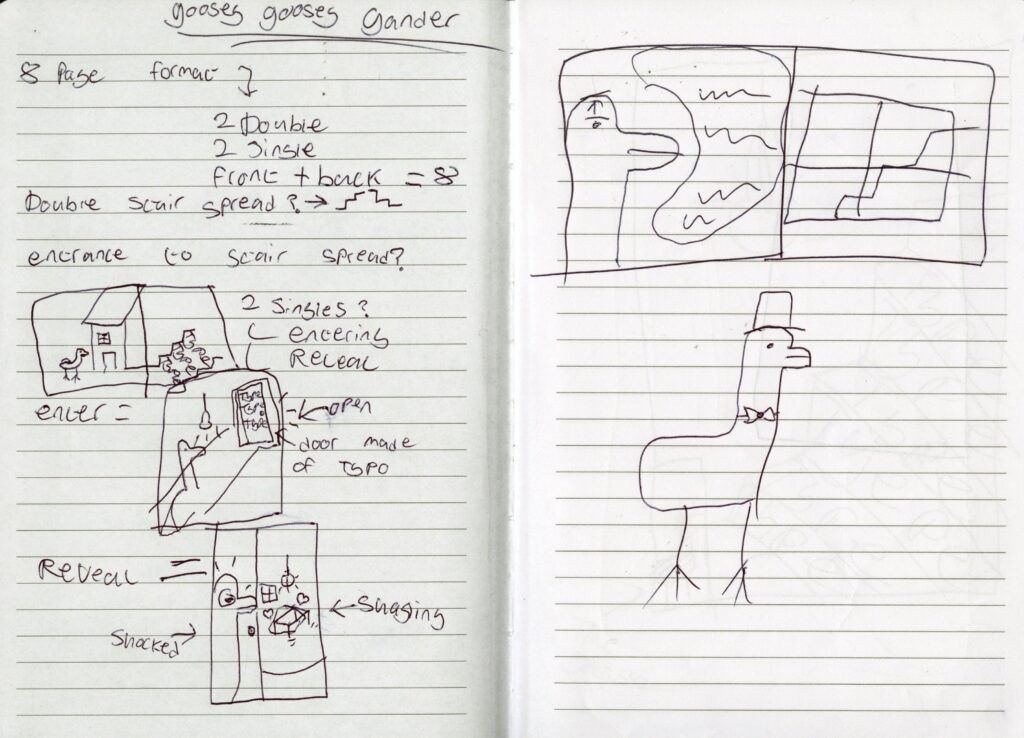 goosey goosey Gander
8 Page format
2 Double
2 Single
front + back = 8
Double stair spread?
entrance to stair spread?
2 Singles?
entering
REVEAL
enter =
open
door made
of TYPO
Type
Type
type
REVEAL =
Shocked
Shaging